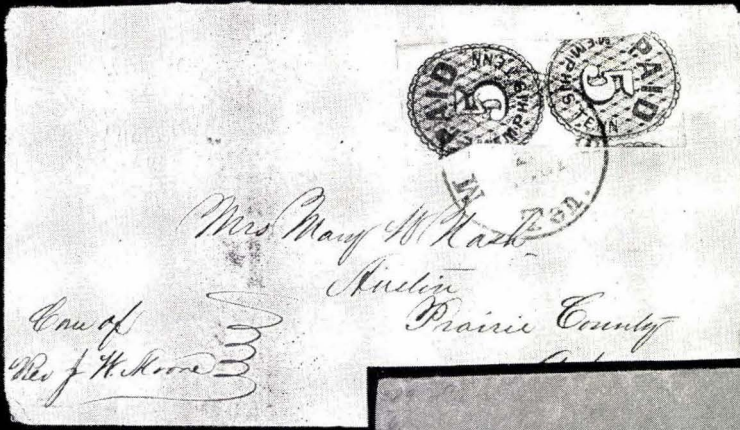 PAID
5
MEMPHIS TENN
PAID
5
MEMPHIS TENN
Mrs Mary W Nash
Austin
Prairie County
Care of
Rev J H Moore